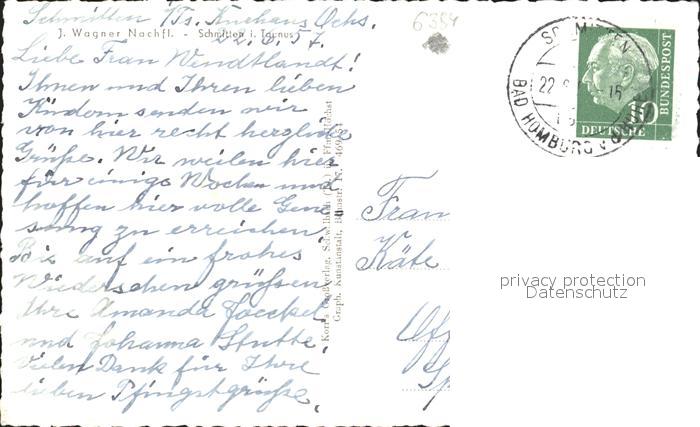 Schmitten /Ts. Kurhaus Ochs.
6384
J. Wagner Nachfl. - Schmitten i. Taunus
22.6.57.
Liebe Frau Wendtlandt!
Ihnen und Ihren lieben
Kindern senden wir
von hier recht herzliche
Grüße. Wir weilen hier
für einige Wochen und
hoffen hier volle Gene
sung zu erreichen.
Bis auf ein frohes
Wiedersehen grüßen
Ihre Amanda
und Johanna
Vielen Dank für Ihre
lieben Pfingstgrüße.
Graph. Kunstanstalt,
Frau
Käte
SCHMITTEN
22
15
BAD HOMBURG
10
DEUTSCHE
BUNDESPOST
privacy protection
Datenschutz